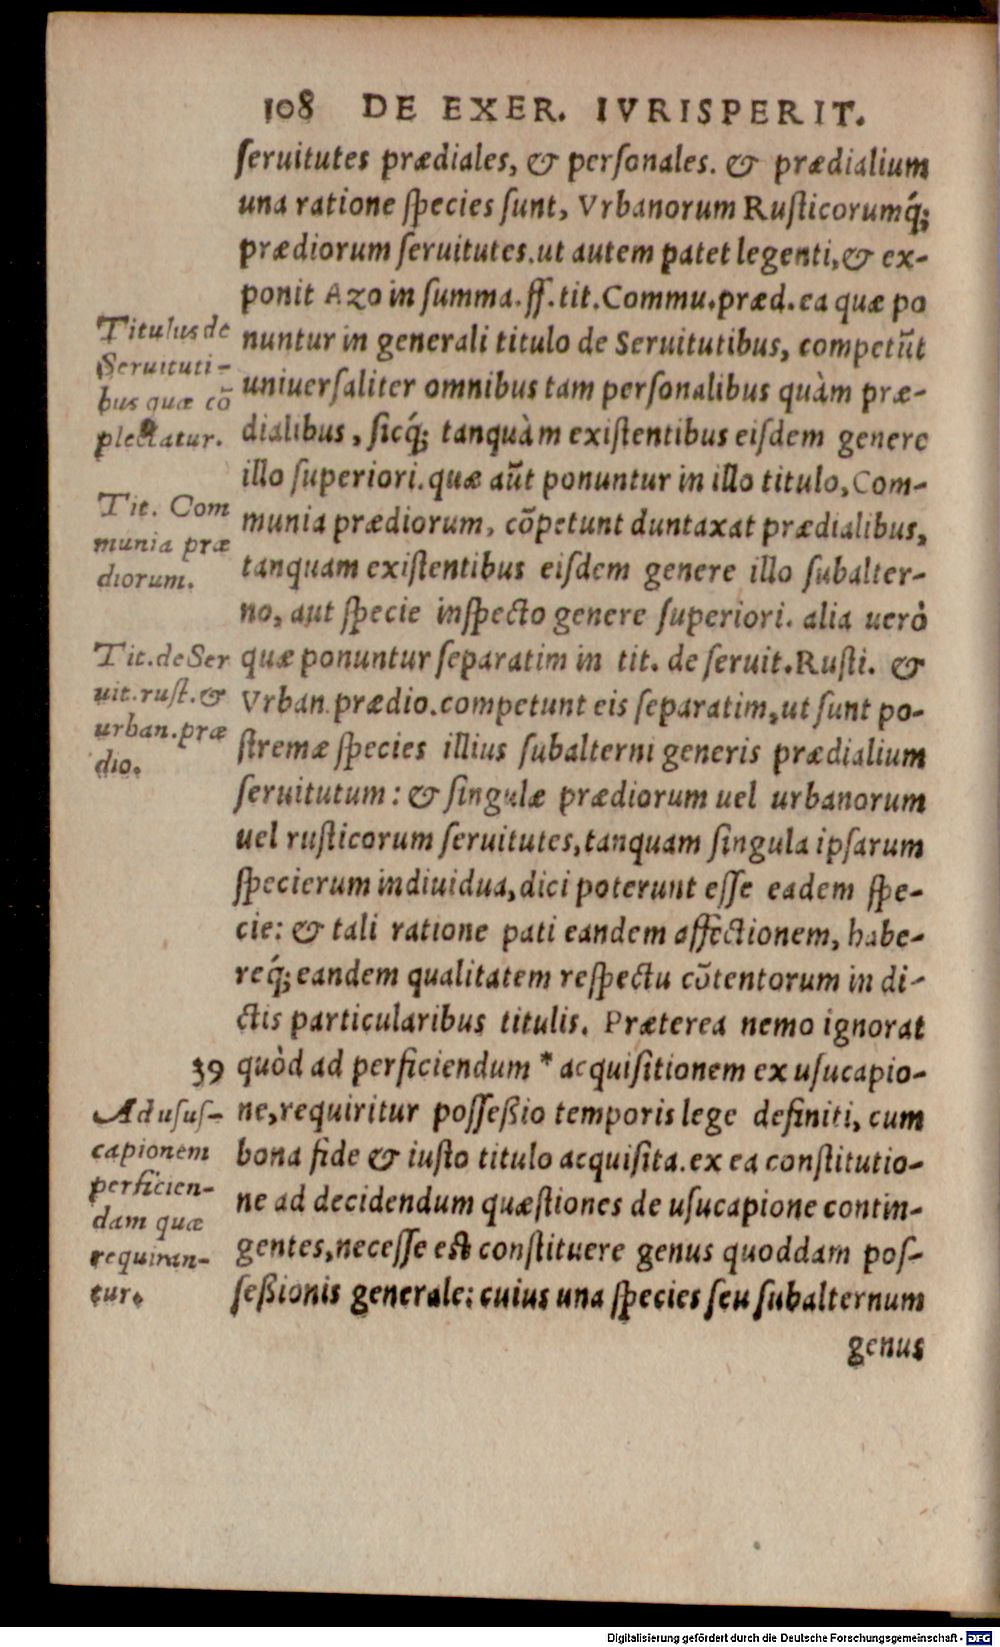 108 DE EXER. IVRISPERIT.
ſeruitutes prædiales, & perſonales. & prædialium
una ratione ſpecies ſunt, Vrbanorum Ruſticorumq́;
prædiorum ſeruitutes. ut autem patet legenti, & ex-
ponit Azo in ſumma. ff. tit. Commu. præd. ea quæ po
nuntur in generali titulo de Seruitutibus, competũt
uniuerſaliter omnibus tam perſonalibus quàm præ-
dialibus, ſicq́; tanquàm exiſtentibus eiſdem genere
illo ſuperiori. quæ aũt ponuntur in illo titulo, Com-
munia prædiorum, cõpetunt duntaxat prædialibus,
tanquam exiſtentibus eiſdem genere illo ſubalter-
no, aut ſpecie inſpecto genere ſuperiori. alia uerò
quæ ponuntur ſeparatim in tit. de ſeruit. Ruſti. &
Vrban. prædio. competunt eis ſeparatim, ut ſunt po-
ſtremæ ſpecies illius ſubalterni generis prædialium
ſeruitutum: & ſingulæ prædiorum uel urbanorum
uel ruſticorum ſeruitutes, tanquam ſingula ipſarum
ſpecierum indiuidua, dici poterunt eſſe eadem ſpe-
cie: & tali ratione pati eandem affectionem, habe-
req́; eandem qualitatem reſpectu cõtentorum in di-
ctis particularibus titulis. Præterea nemo ignorat
39 quòd ad perficiendum * acquiſitionem ex uſucapio-
ne, requiritur poſſeßio temporis lege definiti, cum
bona fide & iuſto titulo acquiſita. ex ea conſtitutio-
ne ad decidendum quæſtiones de uſucapione contin-
gentes, neceſſe eſt conſtituere genus quoddam poſ-
ſeßionis generale: cuius una ſpecies ſeu ſubalternum
genus
Titulus de
Seruituti-
bus quæ cõ
plectatur.
Tit. Com
munia præ
diorum.
Tit. de Ser
uit. ruſt. &
urban. præ
dio.
Ad uſuſ-
capionem
perficien-
dam quæ
requiran-
tur.
Digitalisierung gefördert durch die Deutsche Forschungsgemeinschaft - DFG